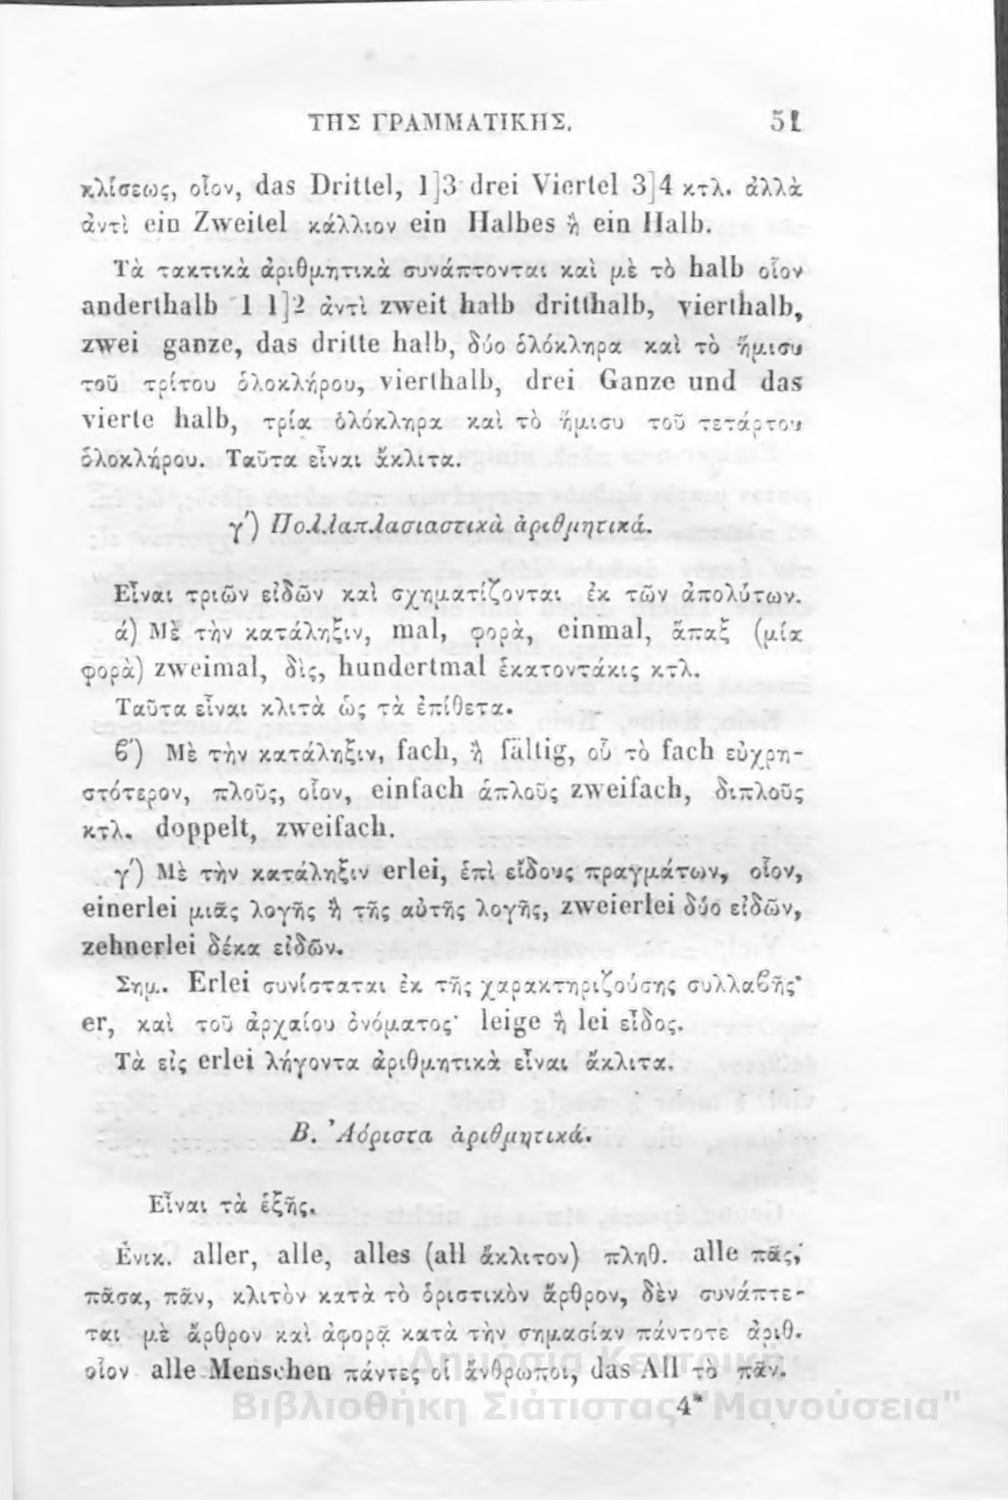 ΤΗΣ ΓΡΑΜΜΑΤΙΚΗΣ. 51
κλίσεως, οἷον, das Drittel, 1]3 drei Viertel 3]4 κτλ. ἀλλὰ
ἀντὶ ein Zweitel κάλλιον ein Halbes ἢ ein Halb.
Τὰ τακτικὰ ἀριθμητικὰ συνάπτονται καὶ μὲ τὸ halb οἷον
anderthalb 1 1]2 ἀντὶ zweit halb dritthalb, vierthalb,
zwei ganze, das dritte halb, δύο ὁλόκληρα καὶ τὸ ἥμισυ
τοῦ τρίτου ὁλοκλήρου, vierthalb, drei Ganze und das
vierte halb, τρία ὁλόκληρα καὶ τὸ ἥμισυ τοῦ τετάρτου
ὁλοκλήρου. Ταῦτα εἶναι ἄκλιτα.
γ') Πολλαπλασιαστικὰ ἀριθμητικά.
Εἶναι τριῶν εἰδῶν καὶ σχηματίζονται ἐκ τῶν ἀπολύτων.
ά) Μὲ τὴν κατάληξιν, mal, φορὰ, einmal, ἅπαξ (μία
φορὰ) zweimal, δὶς, hundertmal ἑκατοντάκις κτλ.
Ταῦτα εἶναι κλιτὰ ὡς τὰ ἐπίθετα.
ϐ') Μὲ τὴν κατάληξιν, fach, ἢ fältig, οὗ τὸ fach εὐχρη-
στότερον, πλοῦς, οἷον, einfach ἁπλοῦς zweifach, διπλοῦς
κτλ. doppelt, zweifach.
γ') Μὲ τὴν κατάληξιν erlei, ἐπὶ εἴδους πραγμάτων, οἷον,
einerlei μιᾶς λογῆς ἢ τῆς αὐτῆς λογῆς, zweierlei δύο εἰδῶν,
zehnerlei δέκα εἰδῶν.
Σημ. Erlei συνίσταται ἐκ τῆς χαρακτηριζούσης συλλαϐῆς·
er, καὶ τοῦ ἀρχαίου ὀνόματος· leige ἢ lei εἶδος.
Τὰ εἰς erlei λήγοντα ἀριθμητικὰ εἶναι ἄκλιτα.
Β. Ἀόριστα ἀριθμητικά.
Εἶναι τὰ ἑξῆς.
Ἑνικ. aller, alle, alles (all ἄκλιτον) πληθ. alle πᾶς,
πᾶσα, πᾶν, κλιτὸν κατὰ τὸ ὁριστικὸν ἄρθρον, δὲν συνάπτε-
ται μὲ ἄρθρον καὶ ἀφορᾷ κατὰ τὴν σημασίαν πάντοτε ἀριθ.
οἷον alle Menschen πάντες οἱ ἄνθρωποι, das All τὸ πᾶν.
4*
Δημόσια Κεντρική
Βιβλιοθήκη Σιάτιστας "Μανούσεια"